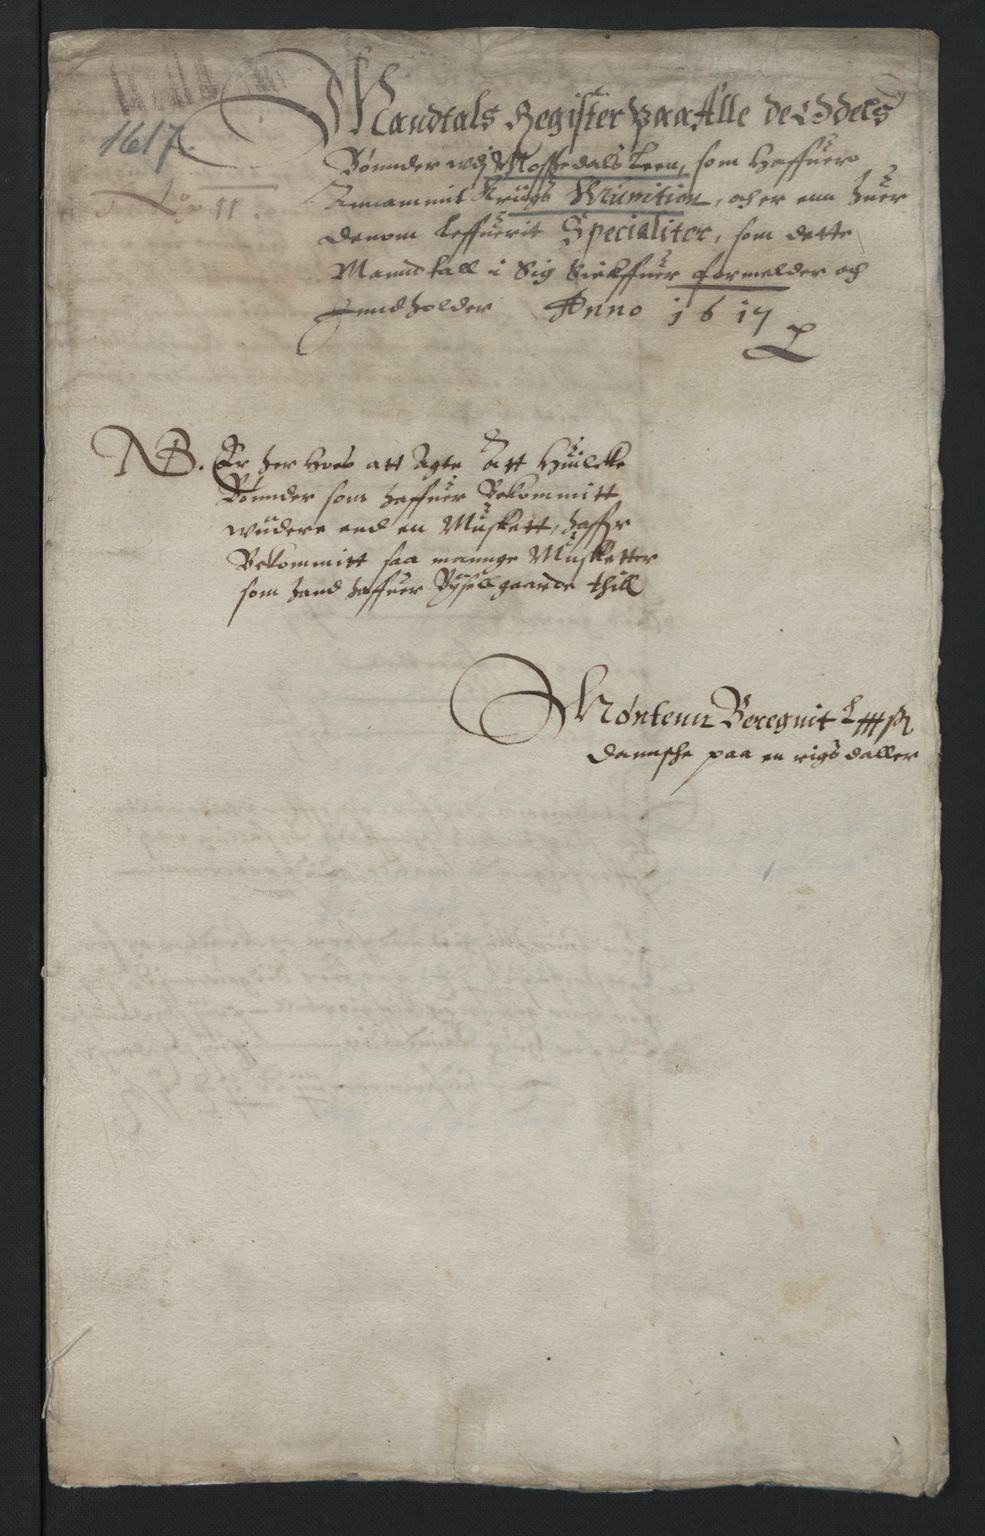 1617.
No 11.
Mandtals Register paa Alle de Oddels
Bønnder wdj Nommedals Leen, som haffuer
Annammit Krigs Munition, och er enn huer
dennom leffuerit Specialiter, som dette
Manndtall i Sig Sielffuer formelder och
Inndholder Anno 1617
NB. Er her hoes att Agte Att Huilcke
Bønnder som haffuer Bekommitt
widere end en Muskett, haffr
Bekommitt saa mannge Musketter
som hand haffuer Bøxell gaarde thill
Møntenn Beregnit
dannsche paa en rigs daller